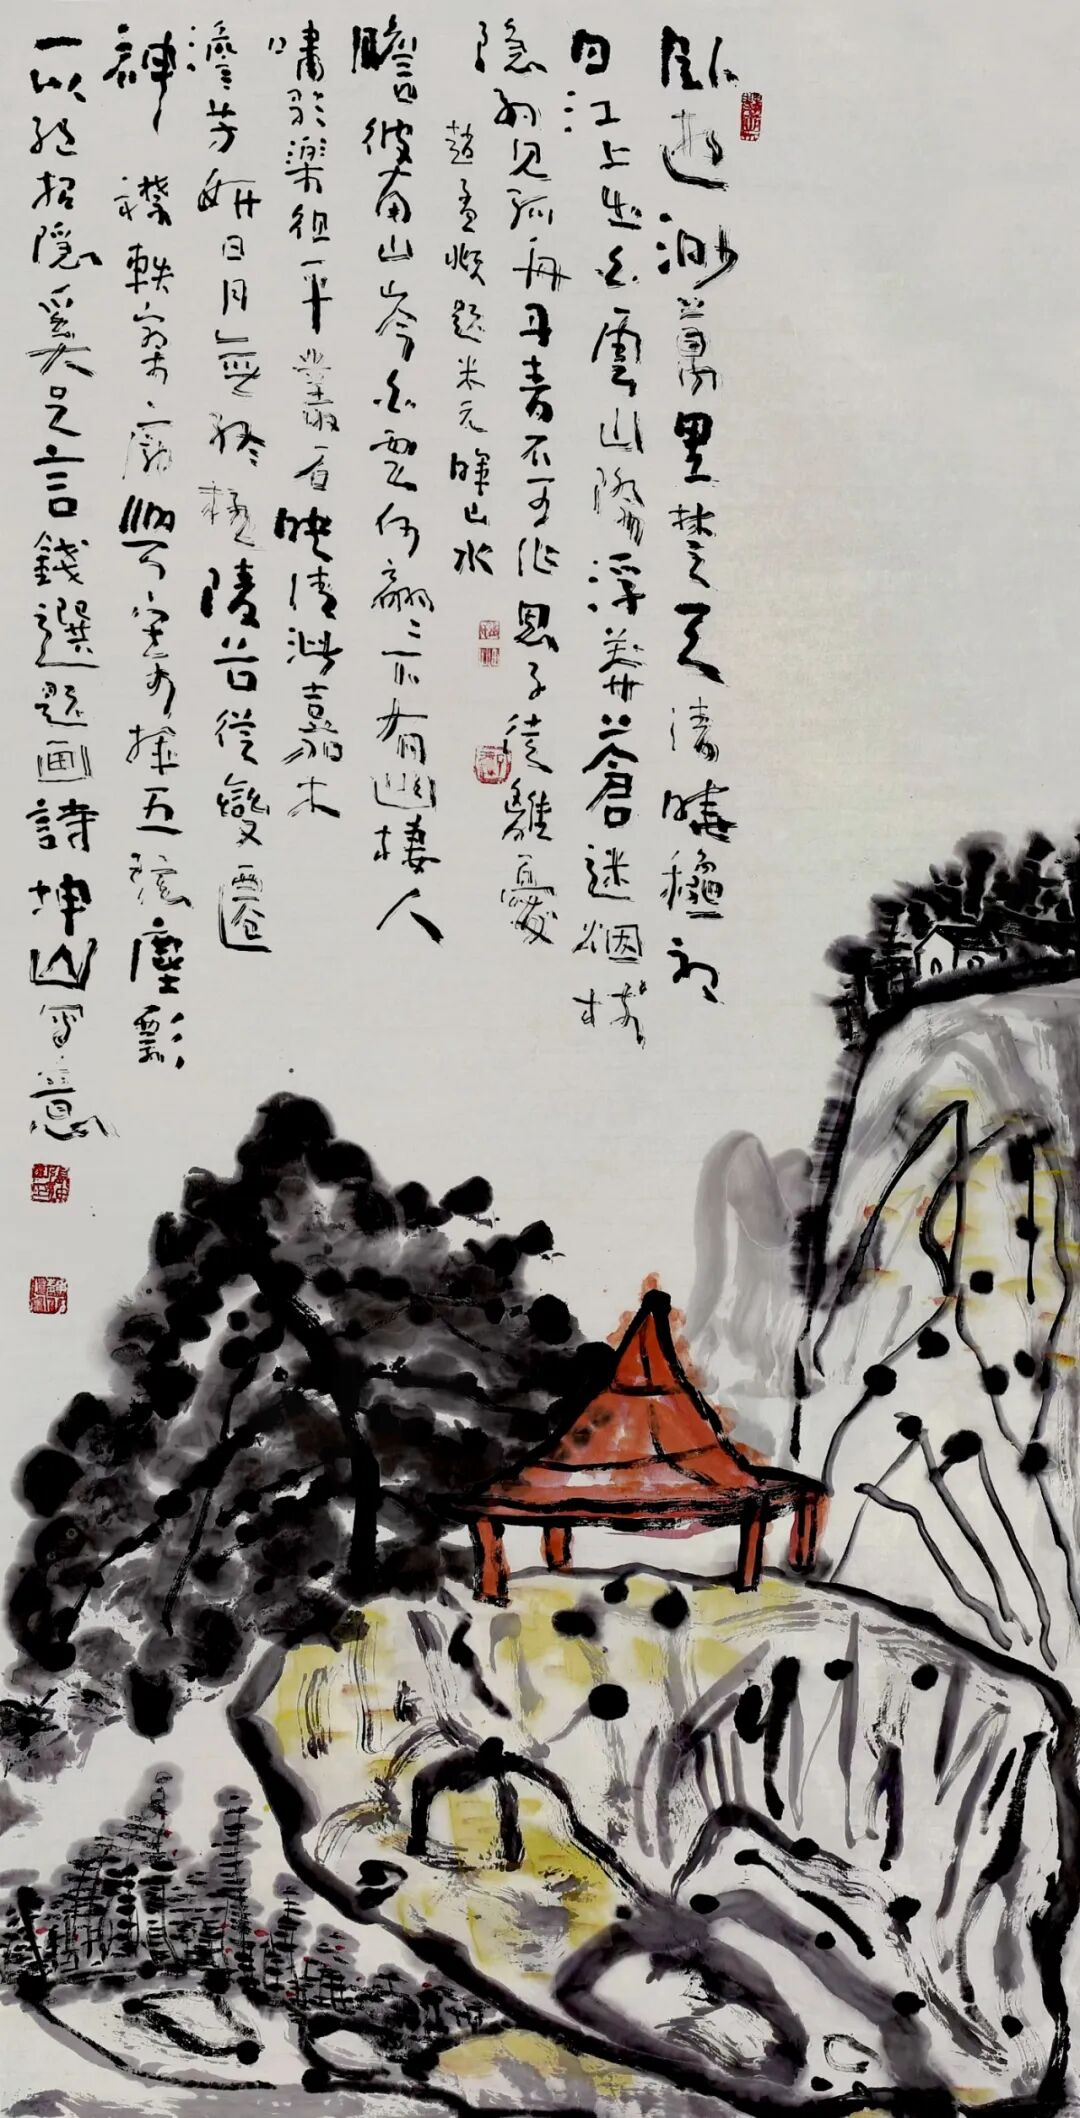 卧遊渺萬里楚天清曉穐初
日江上生白雲山際浮莽蒼迷烟樹
隱約見孤舟丹青不可作思子徒離憂
趙孟頫題米元暉山水
瞻彼南山岑白雲何翩翩下有幽棲人
嘯歌樂徂年叢石映清泚嘉木
澹芳妍日月無終極陵谷從變遷
神襟軼寥廓興寄揮五弦塵影
一以絕招隱奚足言錢選題画詩坤山寫意